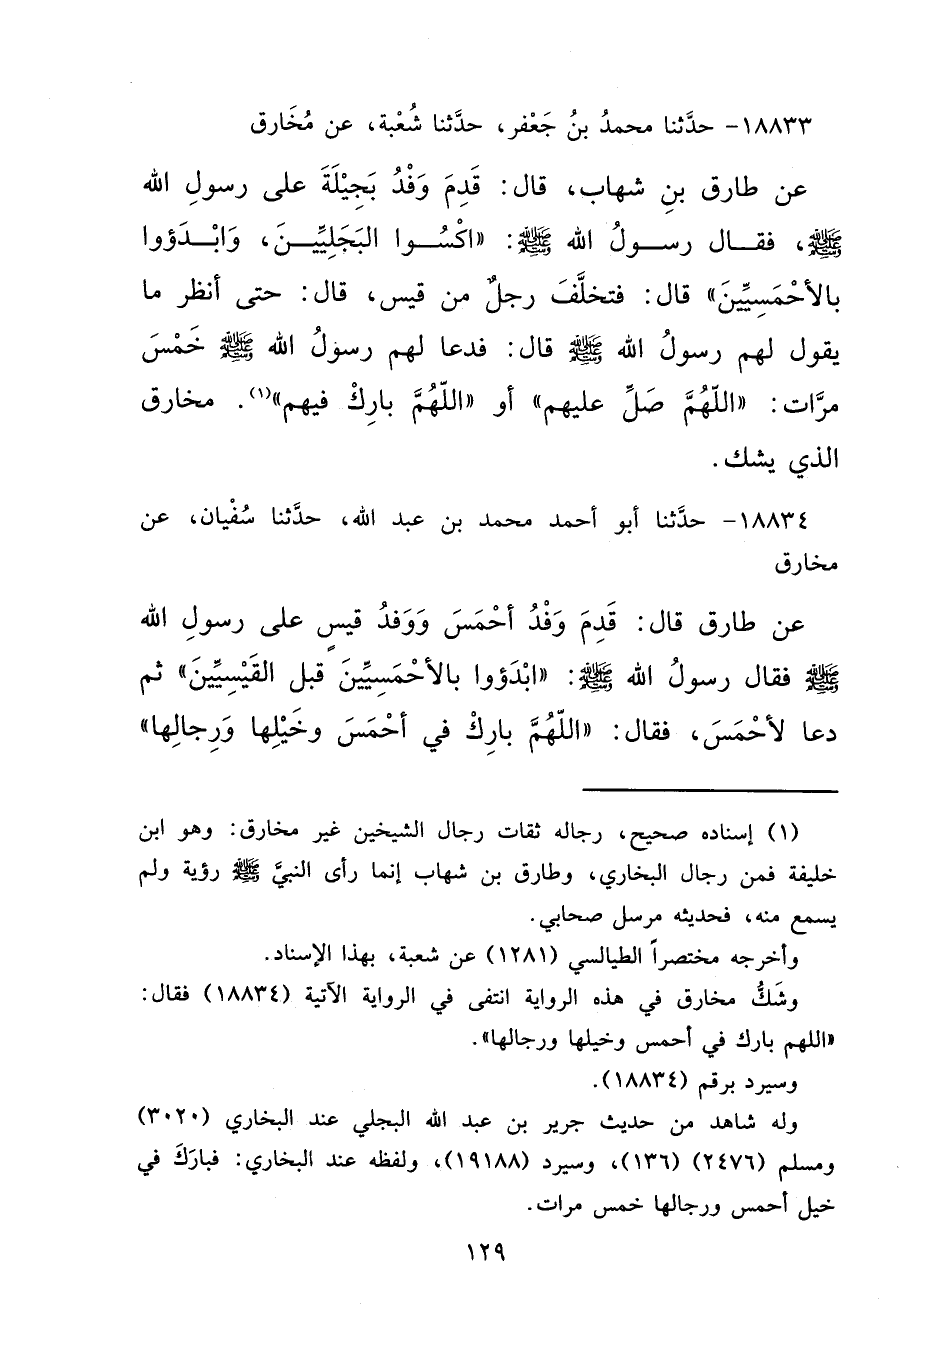 ١٨٨٣٣- حدَّثنا محمدُ بنُ جَعْفر، حدَّثنا شُعْبة، عن مُخَارق
عن طارق بنِ شهاب، قال: قَدِمَ وَفْدُ بَجِيْلَةَ على رسولِ الله
ﷺ، فقال رسولُ الله ﷺ: «اكْسُوا البَجَلِيِّينَ، وَابْدَؤوا
بالأحْمَسِيِّينَ» قال: فتخلَّفَ رجلٌ من قيس، قال: حتى أنظر ما
يقول لهم رسولُ الله ﷺ قال: فدعا لهم رسولُ الله ﷺ خَمْسَ
مرَّات: «اللّهُمَّ صَلِّ عليهم» أو «اللّهُمَّ بارِكْ فيهم»(١). مخارق
الذي يشك.
١٨٨٣٤- حدَّثنا أبو أحمد محمد بن عبد الله، حدَّثنا سُفْيان، عن
مخارق
عن طارق قال: قَدِمَ وَفْدُ أحْمَسَ وَوَفدُ قيسٍ على رسولِ الله
ﷺ فقال رسولُ الله ﷺ: «ابْدَؤوا بالأحْمَسِيِّينَ قبل القَيْسِيِّينَ» ثم
دعا لأحْمَسَ، فقال: «اللّهُمَّ بارِكْ في أحْمَسَ وخَيْلِها وَرِجالِها»
(١) إسناده صحيح، رجاله ثقات رجال الشيخين غير مخارق: وهو ابن
خليفة فمن رجال البخاري، وطارق بن شهاب إنما رأى النبيَّ ﷺ رؤية ولم
يسمع منه، فحديثه مرسل صحابي.
وأخرجه مختصراً الطيالسي (١٢٨١) عن شعبة، بهذا الإسناد.
وشَكُّ مخارق في هذه الرواية انتفى في الرواية الآتية (١٨٨٣٤) فقال:
«اللهم بارك في أحمس وخيلها ورجالها».
وسيرد برقم (١٨٨٣٤).
وله شاهد من حديث جرير بن عبد الله البجلي عند البخاري (٣٠٢٠)
ومسلم (٢٤٧٦) (١٣٦)، وسيرد (١٩١٨٨)، ولفظه عند البخاري: فبارَكَ في
خيل أحمس ورجالها خمس مرات.
١٢٩